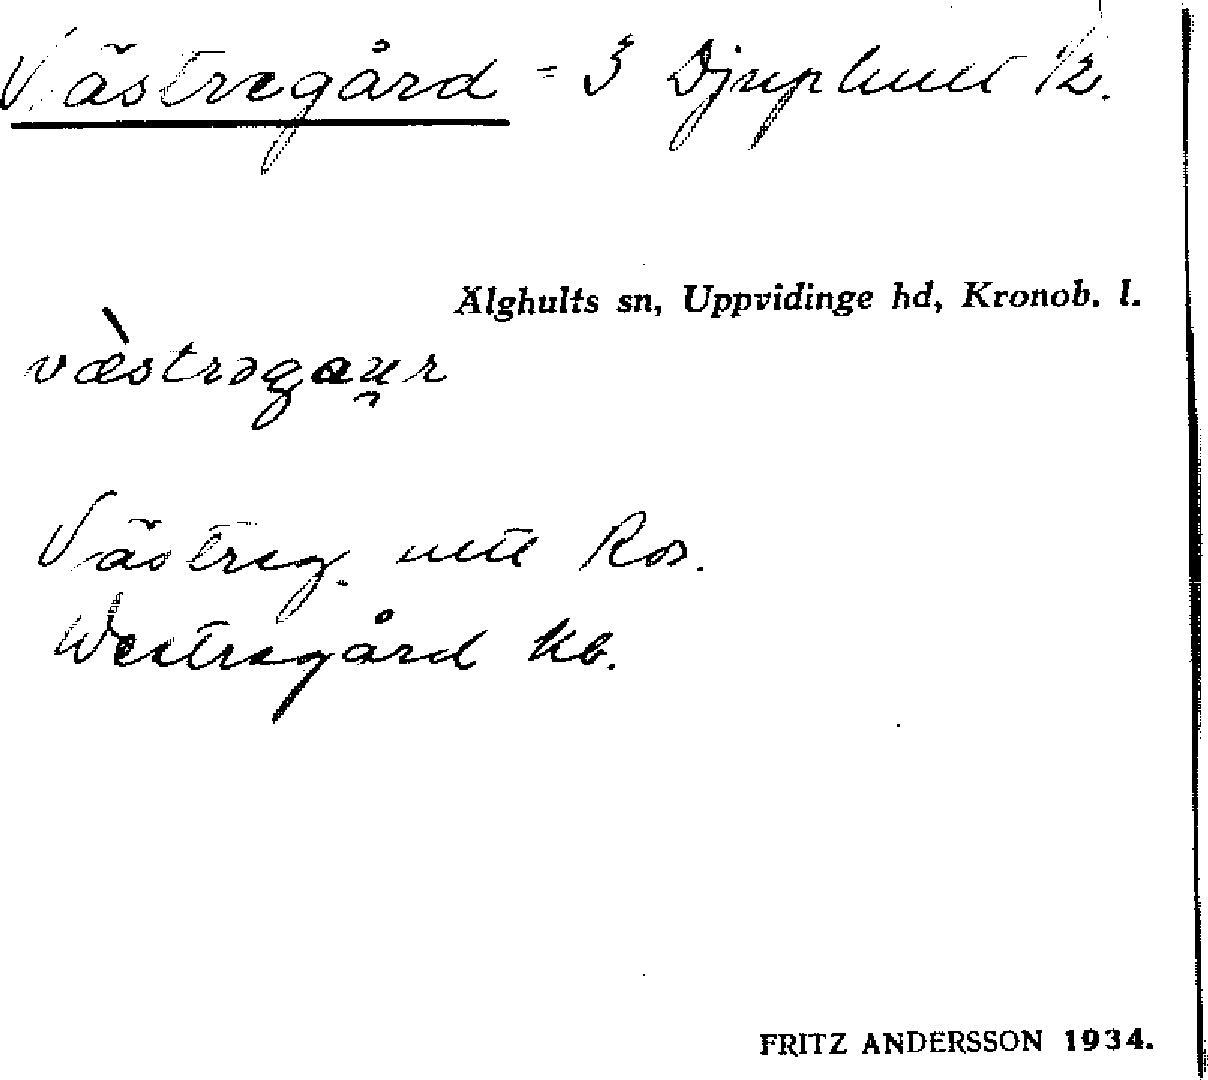 Västregård = 3 Djuphult 1/2.
Älghults sn, Uppvidinge hd, Kronob. l.
væ̀strəgau̯r
Västreg. utt Ros.
Westregård Kb.
FRITZ ANDERSSON 1934.